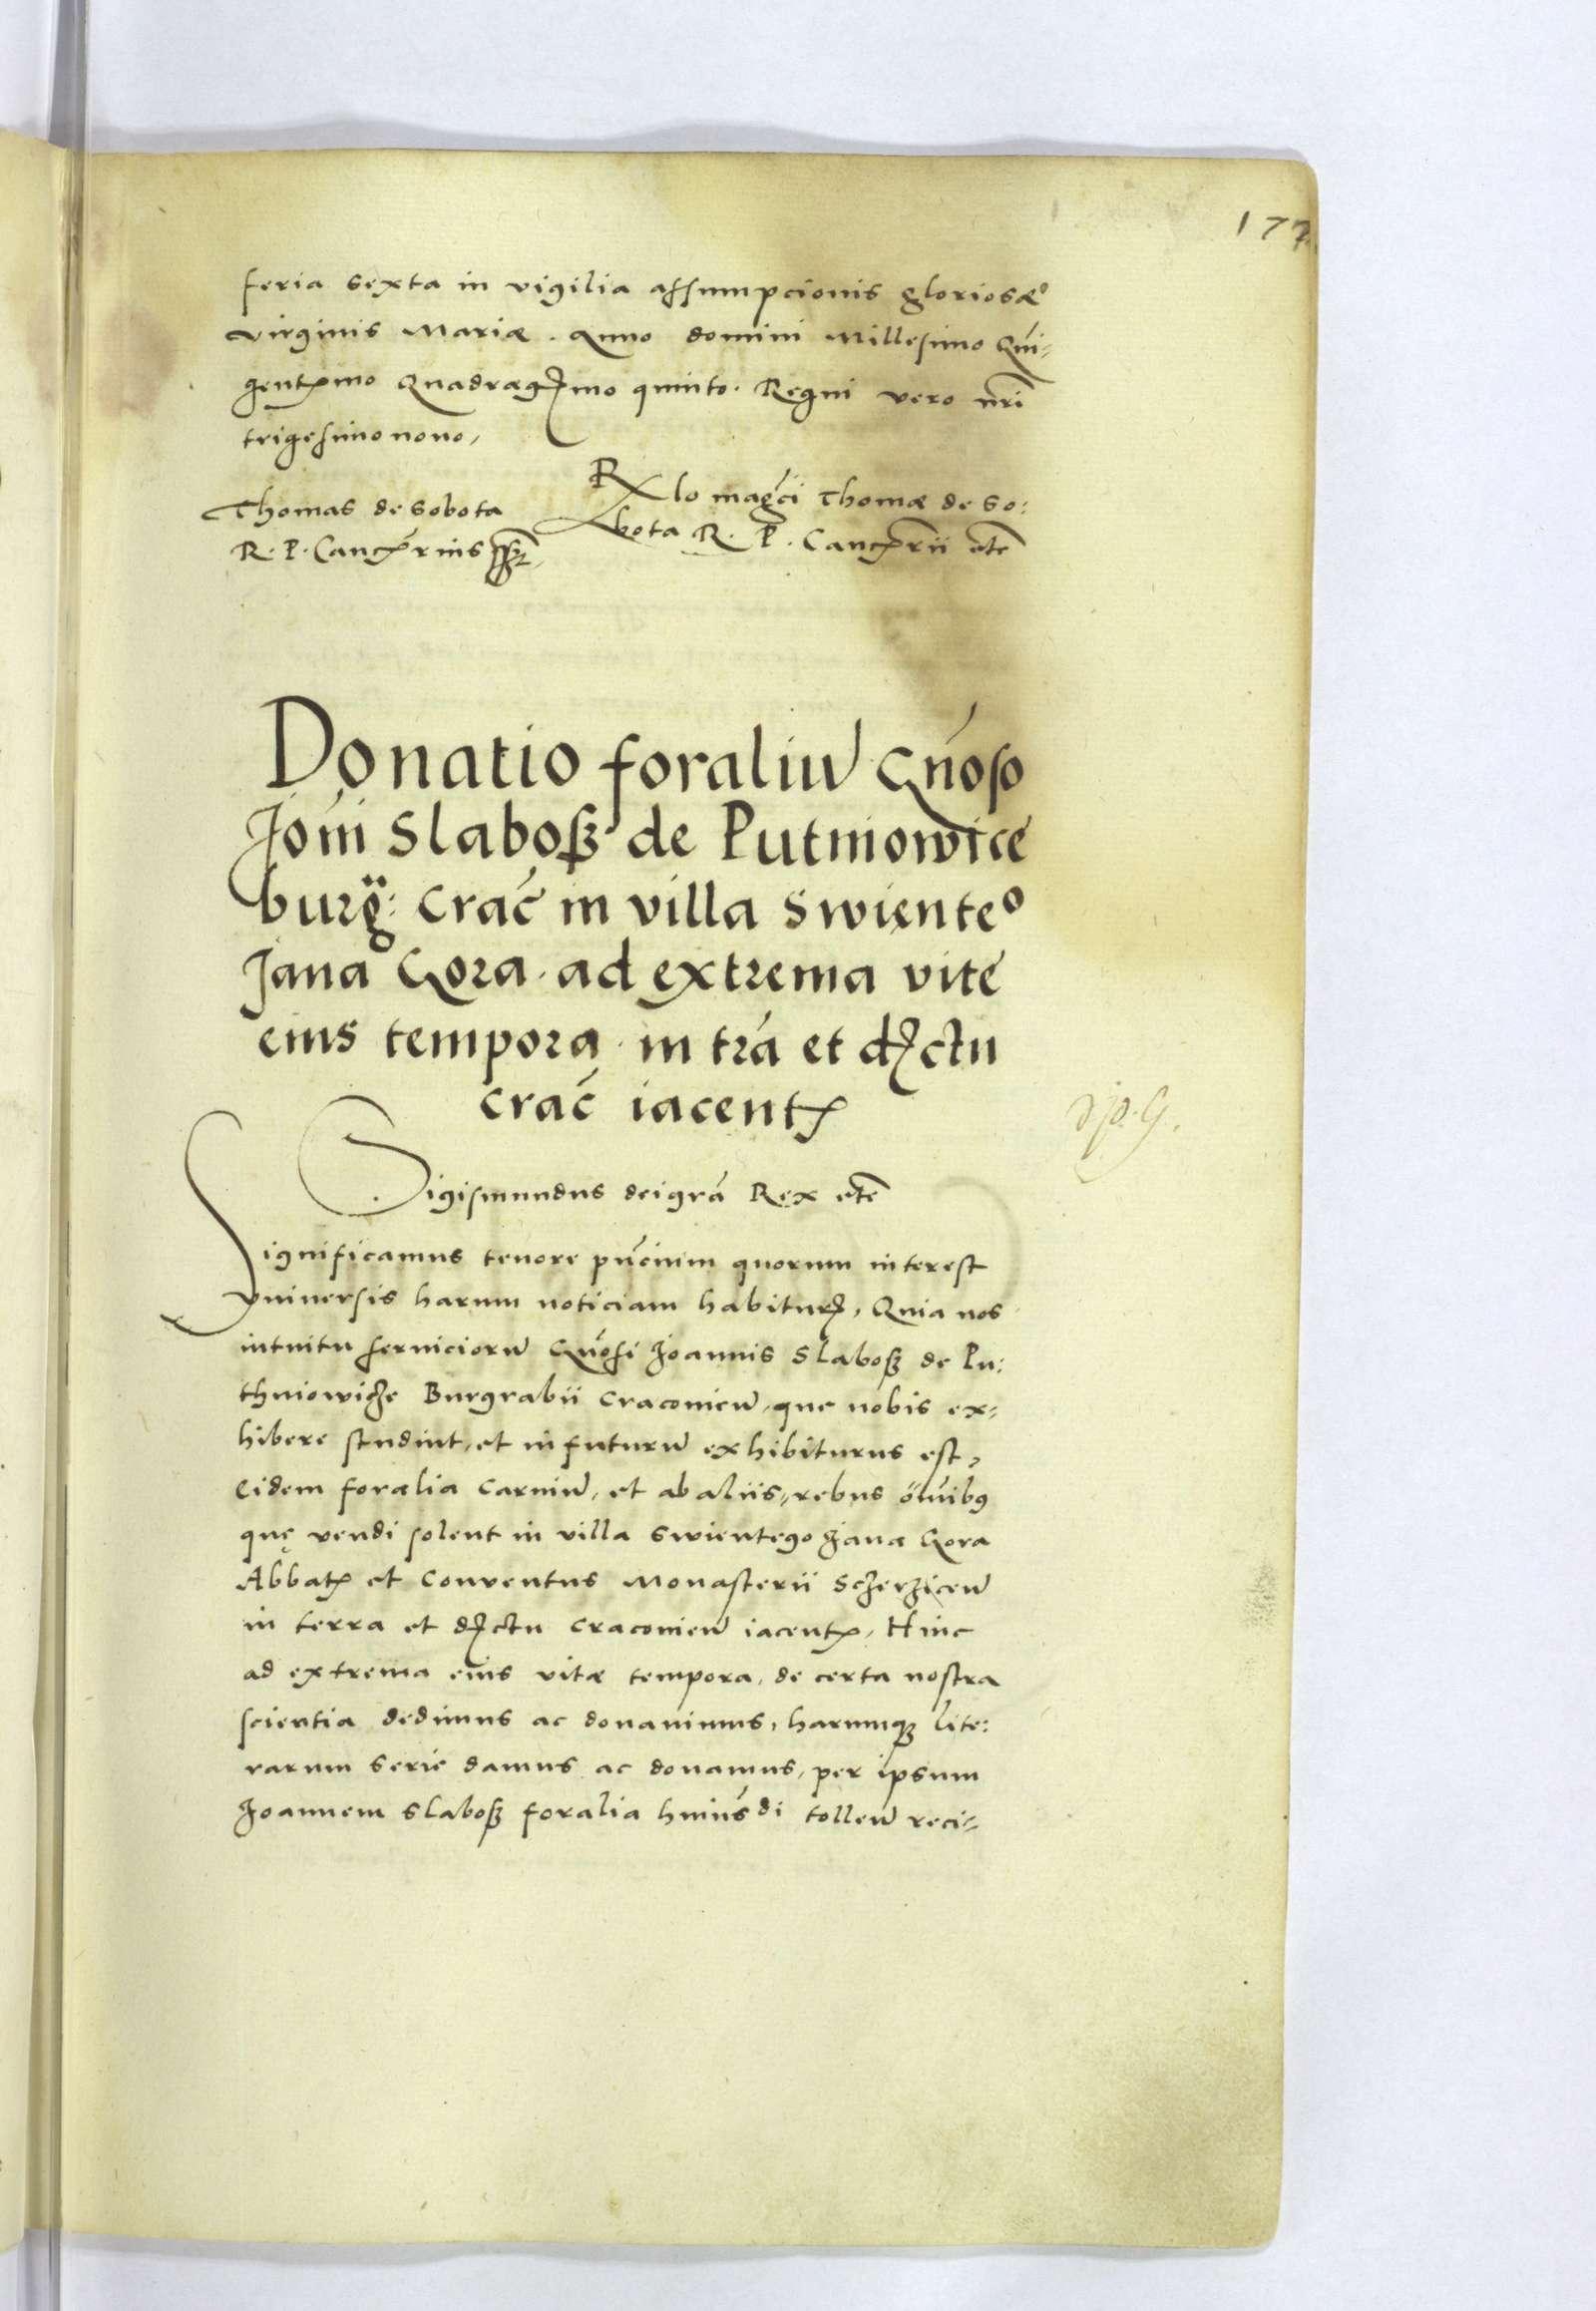 177
feria sexta in vigilia assumpcionis gloriosæ
virginis Mariæ. Anno domini Millesimo Qui-
gentmo Quadragmo quinto. Regni vero nri
trigesimo nono,
Thomas de Sobota
R. P. Cancrius sst
Rlo magci Thomæ de So:
bota R. P. Cancrii etc
Donatio foraliu Gnoso
Joni Slabosz de Putniowice
burg: Crac in villa Swiente°
Jana Gora. ad extrema vite
eius tempora in tra et dictu
Crac iacent
Sigismundus dei gra Rex etc
Significamus tenore pncium quorum interest
vniuersis harum noticiam habitur, Quia nos
intuitu seruicioru Gnosi Joannis Slabosz de Pu:
thniowicze Burgrabii Cracouien, que nobis ex-
hibere studuit, et in futuru exhibiturus est,
Eidem foralia carniu, et ab aliis, rebus omibus
quę vendi solent in villa Swientego Jana Gora
Abbat et Conventus Monasterii Sczerzicen
in terra et dictu Cracouien iacent, Hinc
ad extrema eius vitæ tempora, de certa nostra
scientia dedimus ac donauimus, harumqz lite:
rarum serie damus ac donamus, per ipsum
Joannem Slabosz foralia huiusdi tollen reci-